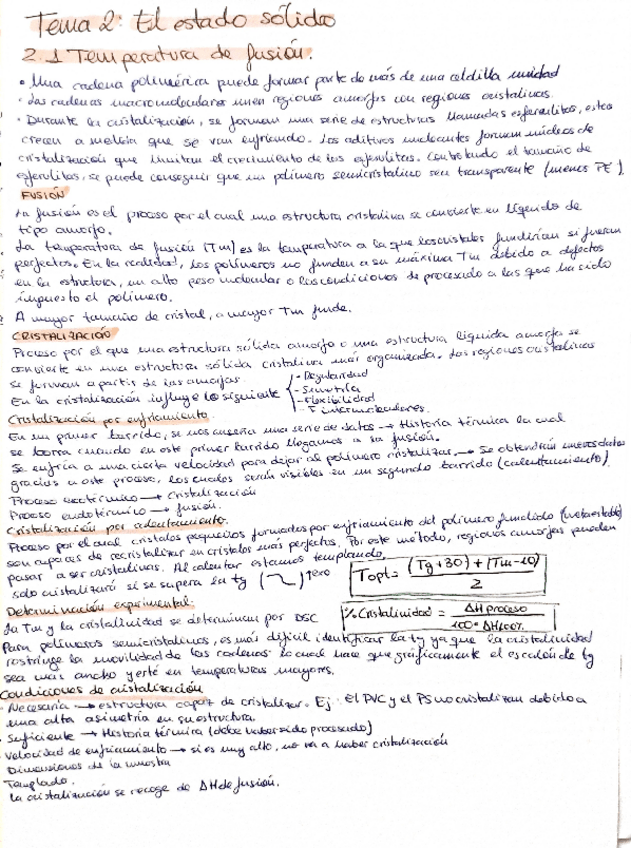 Tema 2: El estado sólido
2.1 Temperatura de fusión.
• Una cadena polimérica puede formar parte de más de una celdilla unidad
• Las cadenas macromoleculares unen regiones amorfas con regiones cristalinas.
• Durante la cristalización, se forman una serie de estructuras llamadas esferulitos, estos
crecen a medida que se van enfriando. Los aditivos nucleantes forman núcleos de
cristalización que limitan el crecimiento de las esferulitas. Controlando el tamaño de
esferulitas, se puede conseguir que un polímero semicristalino sea transparente (menos PE).
FUSIÓN
La fusión es el proceso por el cual una estructura cristalina se convierte en líquido de
tipo amorfo.
La temperatura de fusión (Tm) es la temperatura a la que los cristales fundirían si fueran
perfectos. En la realidad, los polímeros no funden a su máxima Tm debido a defectos
en la estructura, un alto peso molecular o las condiciones de procesado a las que ha sido
impuesto el polímero.
A mayor tamaño de cristal, a mayor Tm funde.
CRISTALIZACIÓN
Proceso por el que una estructura sólida amorfa o una estructura líquida amorfa se
convierte en una estructura sólida cristalina más organizada. Las regiones cristalinas
se forman a partir de las amorfas.
En la cristalización influye lo siguiente
- Regularidad
- Simetría
- Flexibilidad
- F intermoleculares.
Cristalización por enfriamiento.
En un primer barrido, se nos enseña una serie de datos → Historia térmica la cual
se borra cuando en este primer barrido llegamos a su fusión.
Se enfría a una cierta velocidad para dejar al polímero cristalizar. → Se obtendrán nuevos datos
gracias a este proceso, los cuales serán visibles en un segundo barrido (calentamiento).
Proceso exotérmico → cristalización
Proceso endotérmico → fusión.
Cristalización por calentamiento.
Proceso por el cual cristales pequeños formados por enfriamiento del polímero fundido (metaestable)
son capaces de recristalizar en cristales más perfectos. Por este método, regiones amorfas pueden
pasar a ser cristalinas. Al calentar estamos templando,
solo cristalizará si se supera la tg
Topt = (Tg+30) + (Tm-10) / 2
Determinación experimental:
La Tm y la cristalinidad se determinan por DSC
% Cristalinidad = ΔH proceso / 100 · ΔH100%
Para polímeros semicristalinos, es más difícil identificar la tg ya que la cristalinidad
restringe la movilidad de las cadenas lo cual hace que gráficamente el escalón de tg
sea más ancho y esté en temperaturas mayores.
Condiciones de cristalización
- Necesaria → estructura capaz de cristalizar. Ej: El PVC y el PS no cristalizan debido a
una alta asimetría en su estructura.
- Suficiente → Historia térmica (debe haber sido procesado)
- Velocidad de enfriamiento → si es muy alto, no va a haber cristalización
Dimensiones de la muestra
Templado.
La cristalización se recoge de ΔH de fusión.